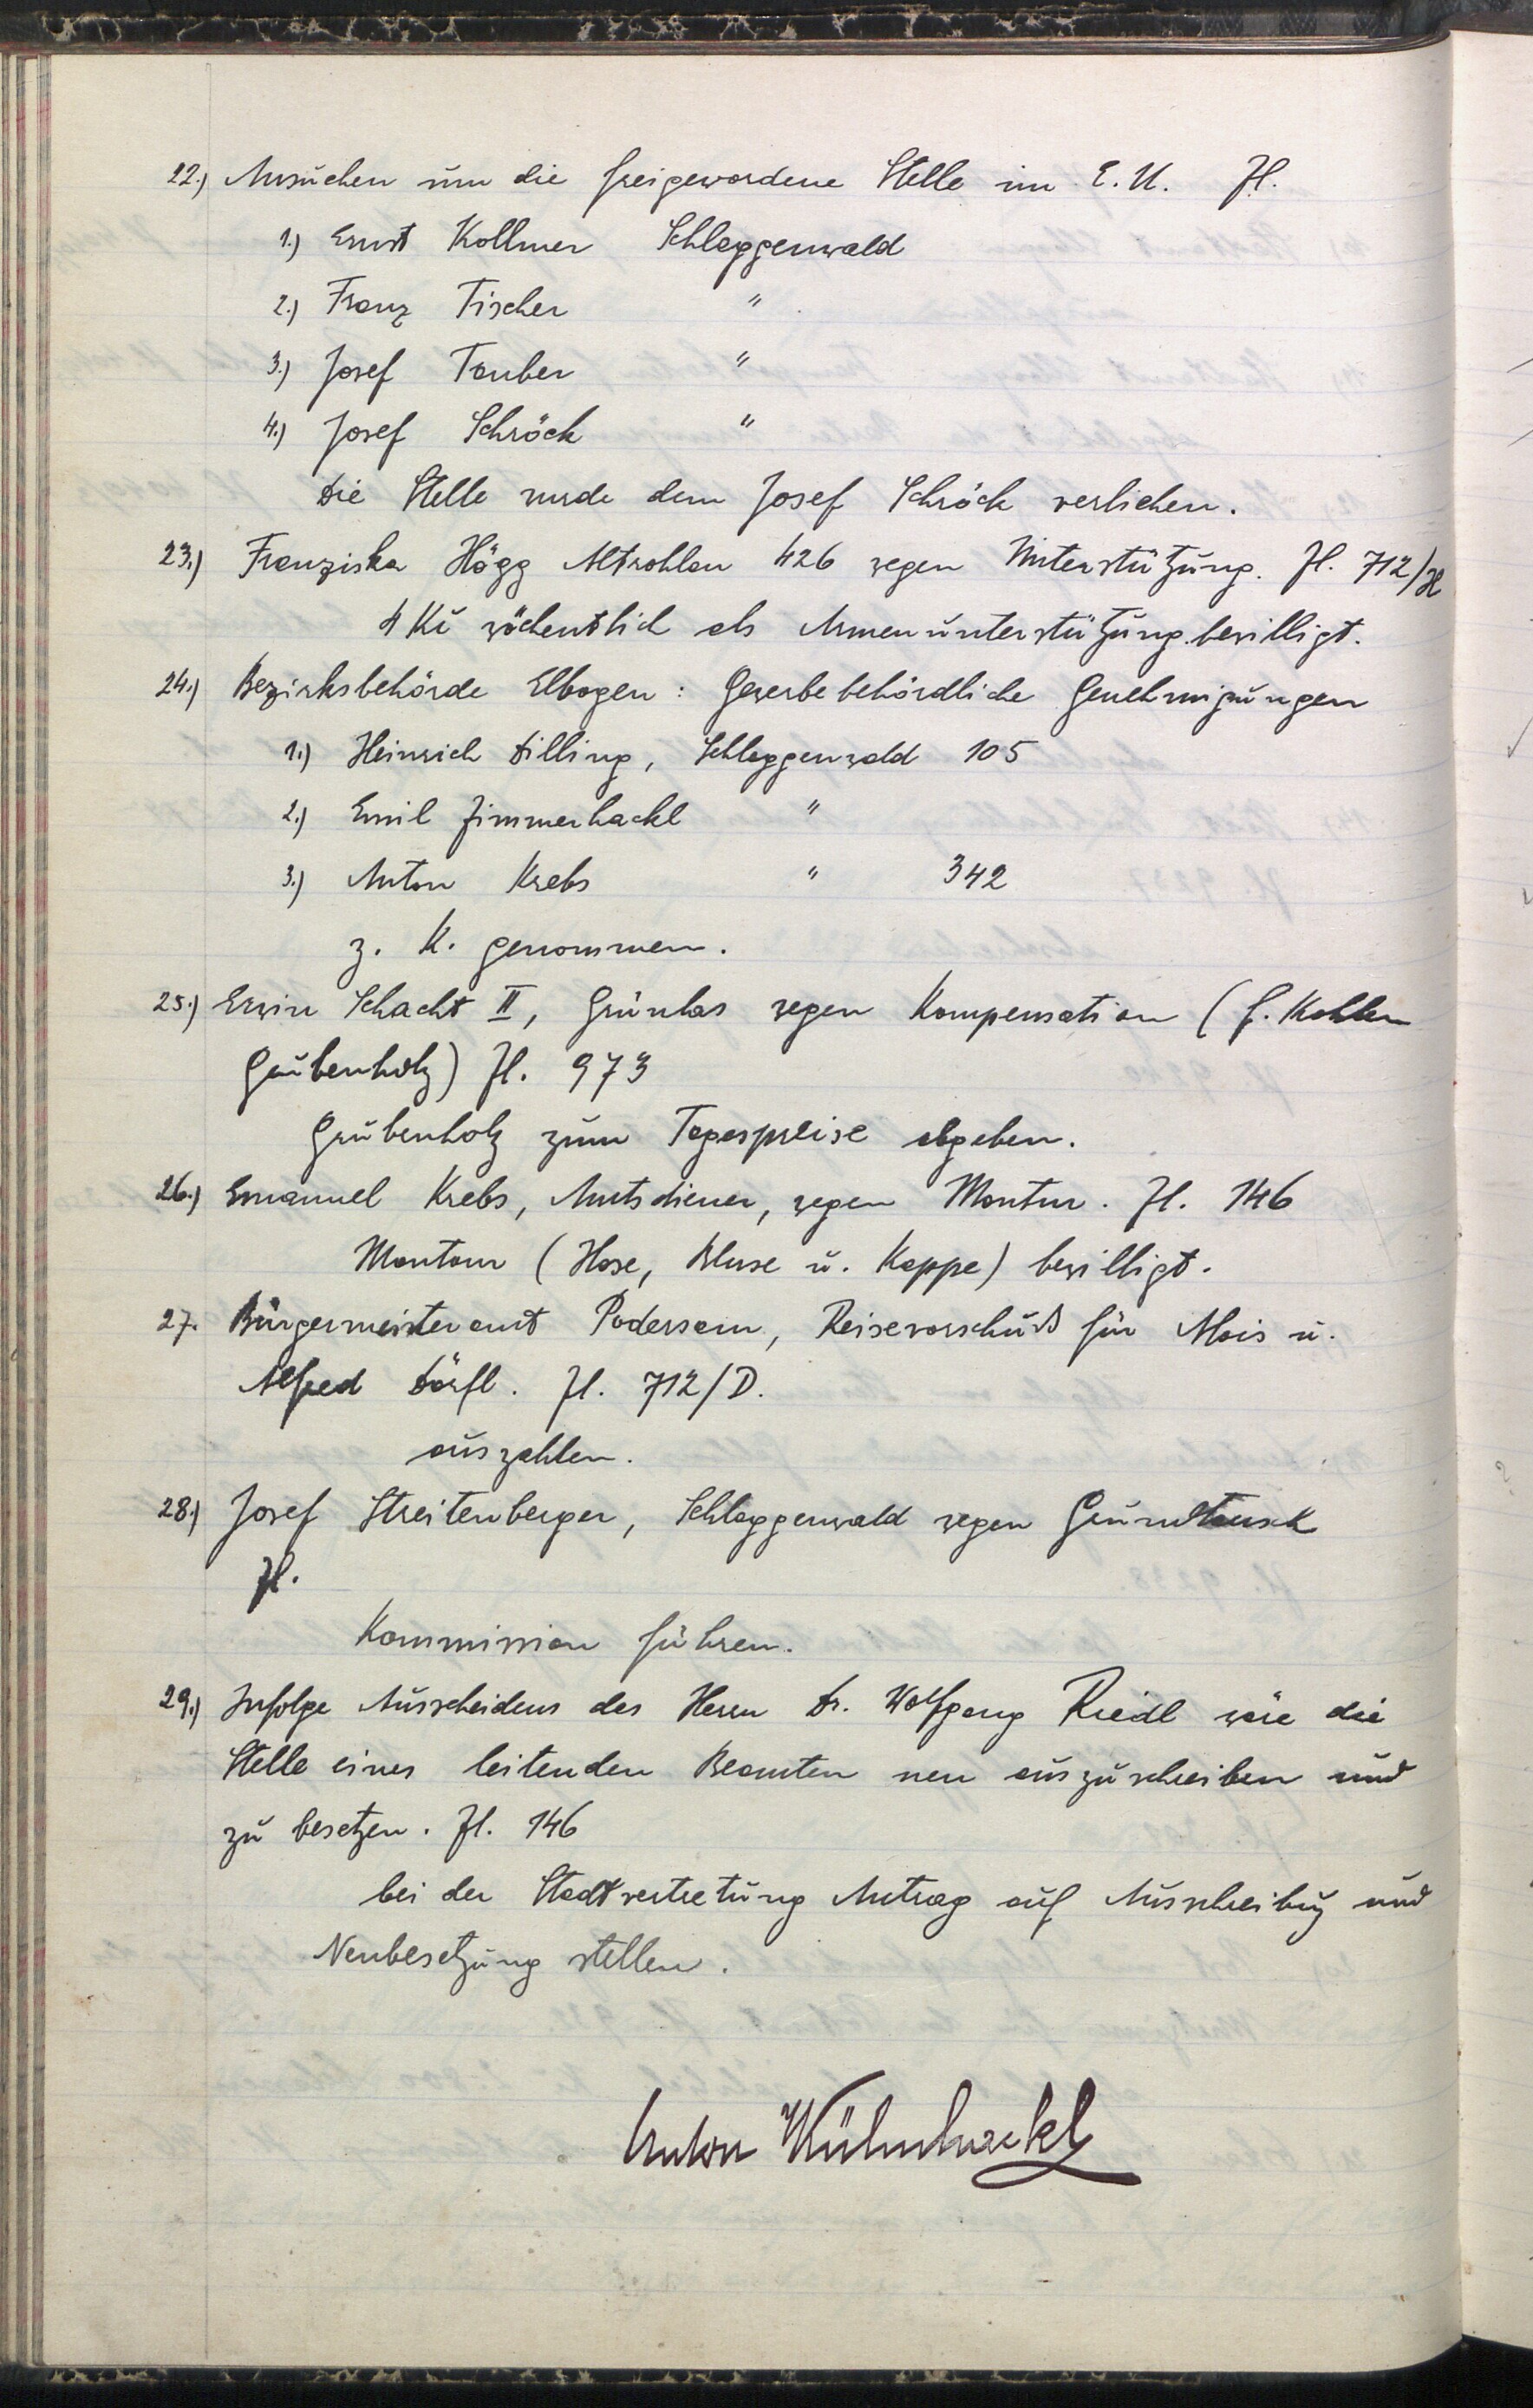 22.) Ansuchen um die freigewordene Stelle im E.U. Zl.
1.) Ernst Kollmer Schlaggenwald
2.) Franz Fischer "
3.) Josef Tauber "
4.) Josef Schröck "
Die Stelle wurde dem Josef Schröck verliehen.
23.) Franziska Högg Altrohlau 426 wegen Unterstützung. Zl. 712/H
4 Kč wöchentlich als Armenunterstützung bewilligt.
24.) Bezirksbehörde Elbogen: Gewerbebehördliche Genehmigungen
1.) Heinrich Dilling, Schlaggenwald 105
2.) Emil Zimmerhackl "
3.) Anton Krebs " 342
z. K. genommen.
25.) Erwin Schacht II, Grünlas wegen Kompensation (f. Kohlen
Grubenholz) Zl. 973
Grubenholz zum Tagespreise abgeben.
26.) Emanuel Krebs, Amtsdiener, wegen Montur. Zl. 146
Montour (Hose, Bluse u. Kappe) bewilligt.
27. Bürgermeisteramt Podersam, Reisevorschuß für Alois u.
Alfred Dörfl. Zl. 712/D.
auszahlen.
28.) Josef Streitenberger, Schlaggenwald wegen Grundtausch
Zl.
Kommission führen.
29.) Infolge Ausscheidens des Herrn Dr. Wolfgang Riedl wäre die
Stelle eines leitenden Beamten neu auszuschreiben und
zu besetzen. Zl. 146
bei der Stadtvertretung Antrag auf Ausschreibung und
Neubesetzung stellen.
Anton Kühnhackl